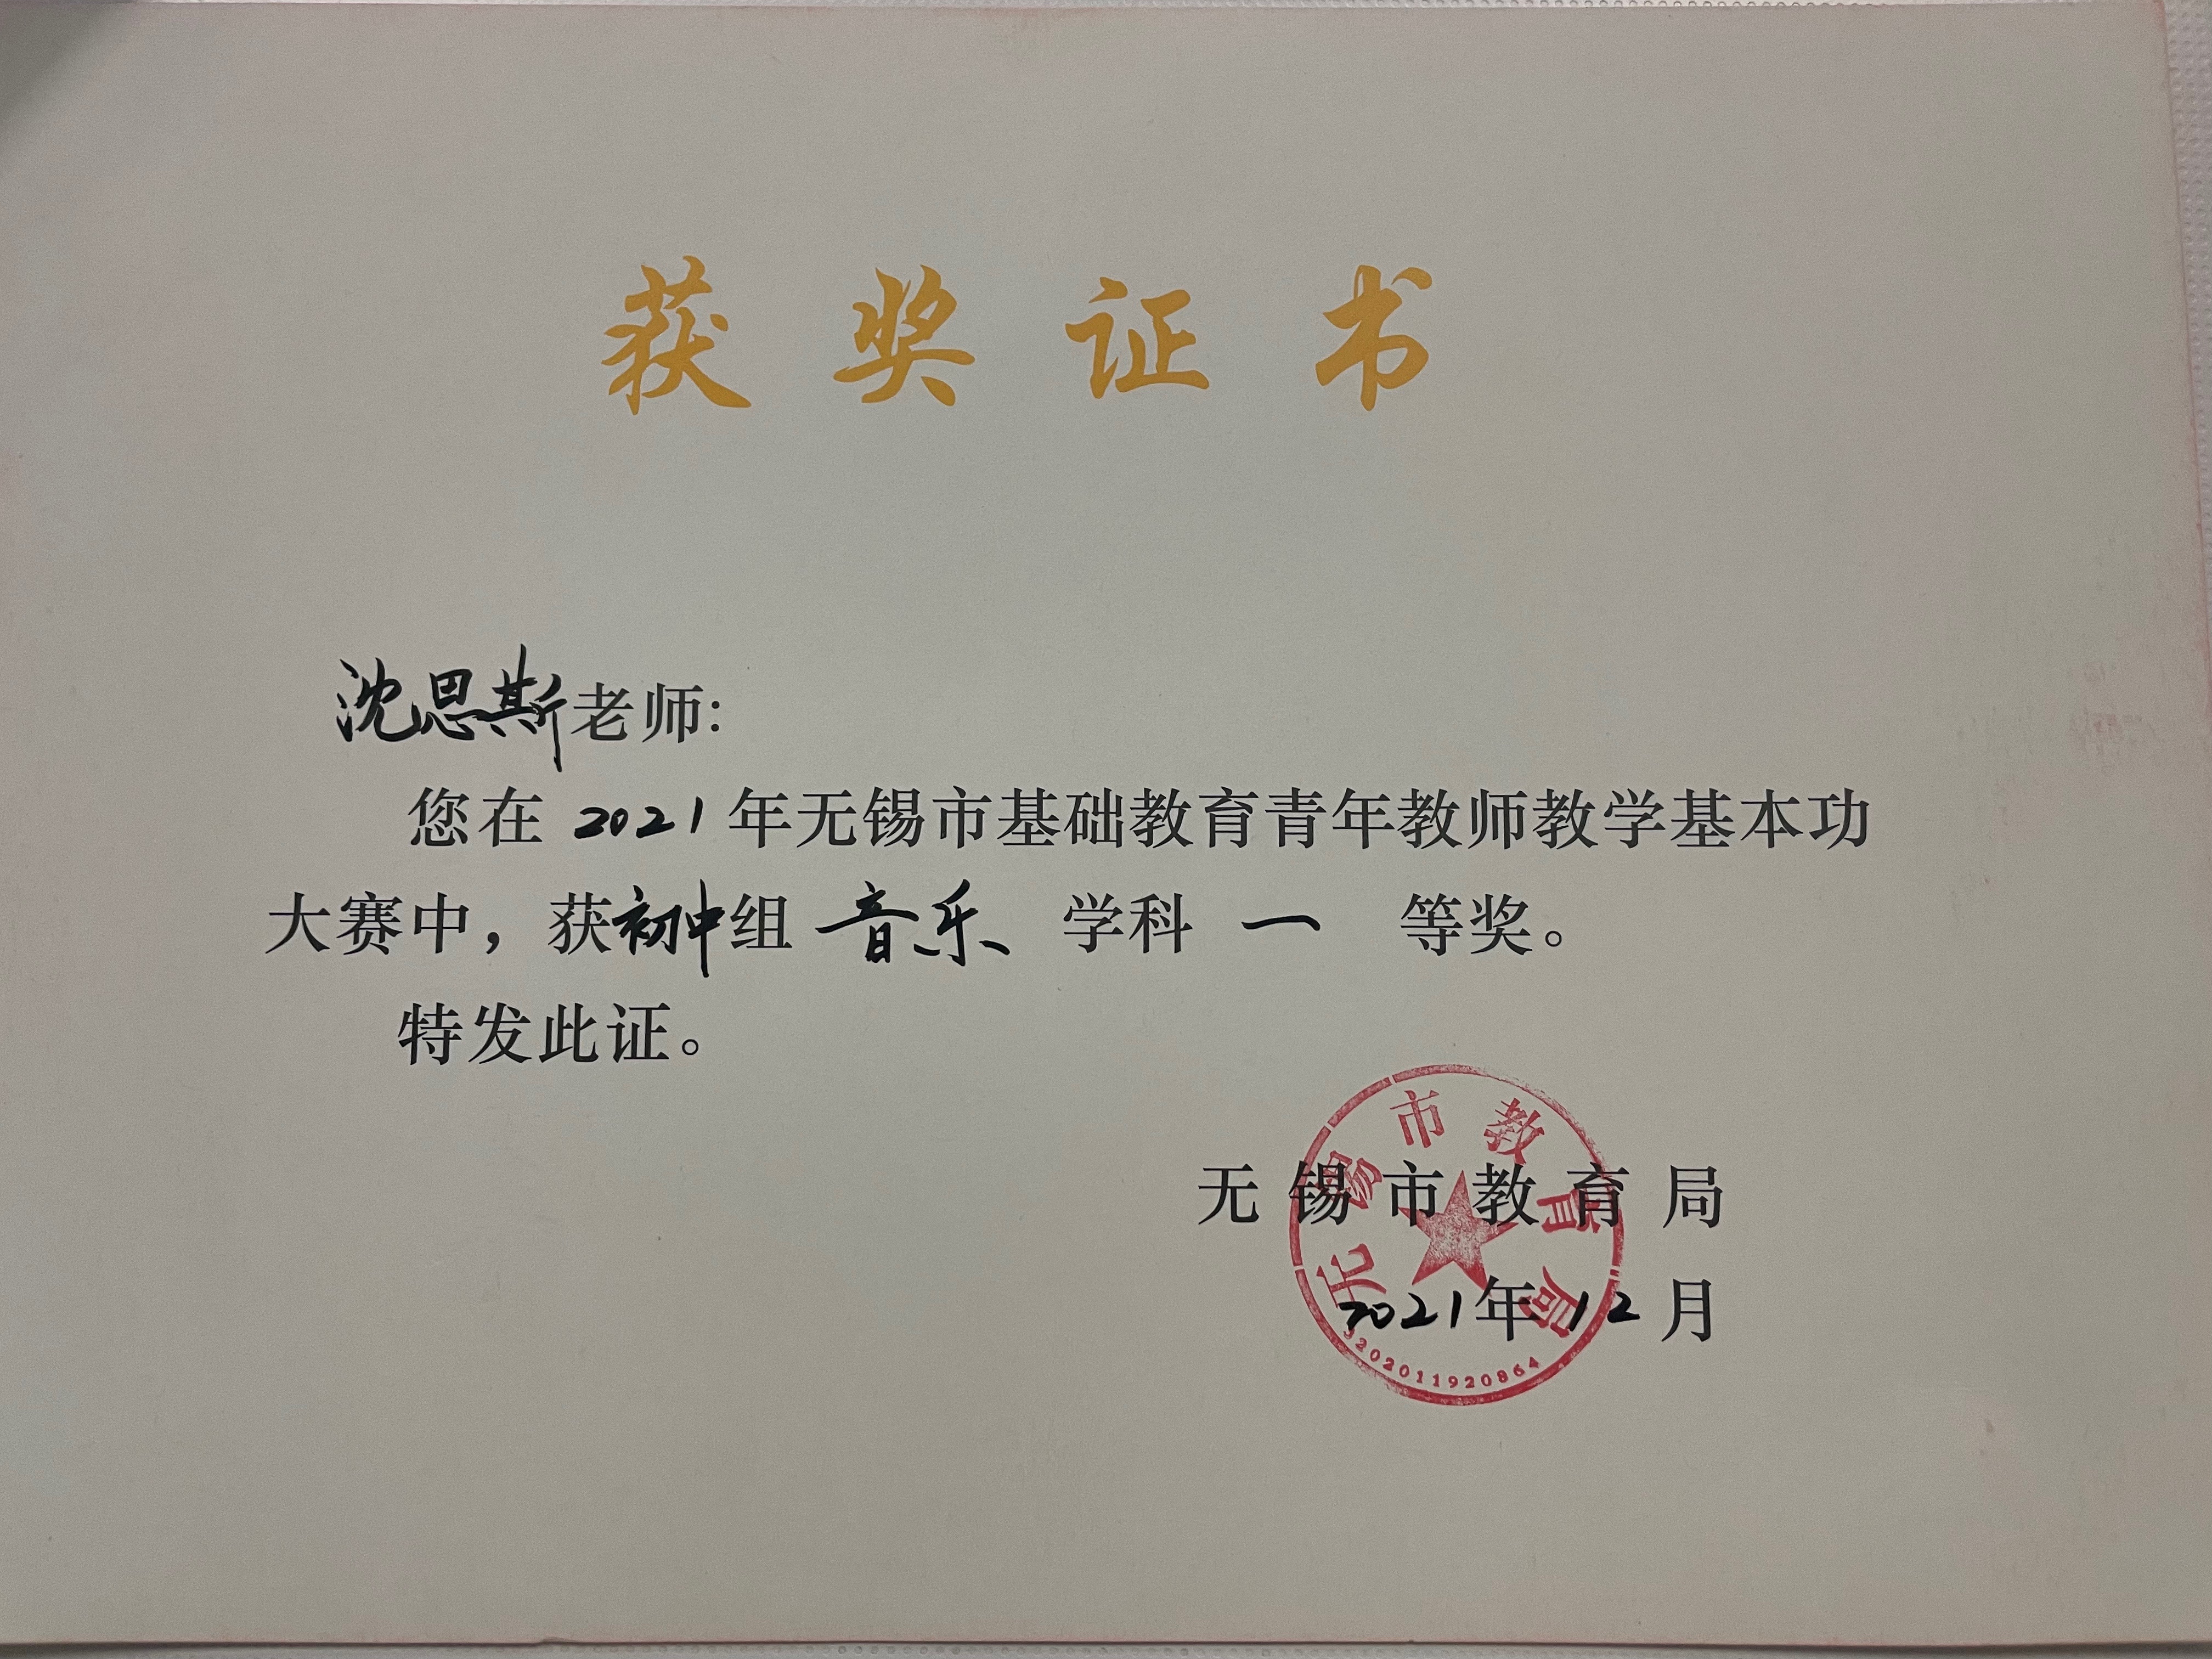 获奖证书
沈思斯老师:
您在 2021 年无锡市基础教育青年教师教学基本功
大赛中，获初中组 音乐 学科 一 等奖。
特发此证。
无锡市教育局
2021年12月
无锡市教育局
3202011920864